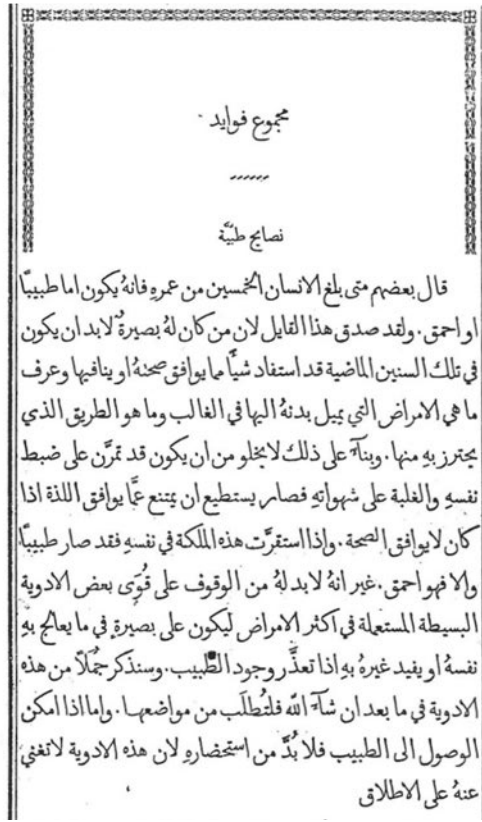 مجموع فوايد
نصايح طبيَّة
قال بعضهم متى بلغ الانسان الخمسين من عمرهِ فانهُ يكون اما طبيبًا
او احمق. ولقد صدق هذا القايل لان من كان لهُ بصيرةٌ لا بد ان يكون
في تلك السنين الماضية قد استفاد شيأً مما يوافق صحتهُ او ينافيها وعرف
ما هي الامراض التي يميل بدنهُ اليها في الغالب وما هو الطريق الذي
يحترز بهِ منها. وبنآءً على ذلك لا يخلو من ان يكون قد تمرَّن على ضبط
نفسهِ والغلبة على شهواتهِ فصار يستطيع ان يمتنع عمَّا يوافق اللذة اذا
كان لا يوافق الصحة. واذا استقرَّت هذه الملَكة في نفسهِ فقد صار طبيبًا
والا فهو احمق. غير انهُ لا بد لهُ من الوقوف على قُوَى بعض الادوية
البسيطة المستعملة في اكثر الامراض ليكون على بصيرةٍ في ما يعالج بهِ
نفسهُ او يفيد غيرهُ بهِ اذا تعذَّر وجود الطبيب. وسنذكر جُمَلًا من هذه
الادوية في ما بعد ان شآءَ الله فلتُطلَب من مواضعها. واما اذا امكن
الوصول الى الطبيب فلا بُدَّ من استحضارهِ لان هذه الادوية لا تغني
عنهُ على الاطلاق